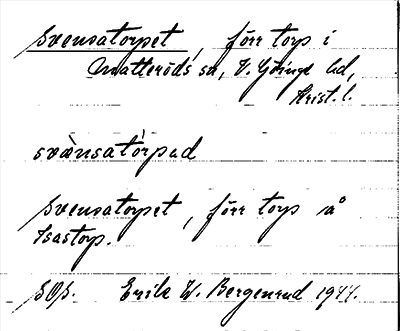 Svensatorpet, förr torp i
Matteröds sn, V. Göinge hd,
Krist. l.
svä̀nsatòrpad
Svensatorpet, förr torp å
Isastorp.
SOS. Erik W. Bergenrud 1944.